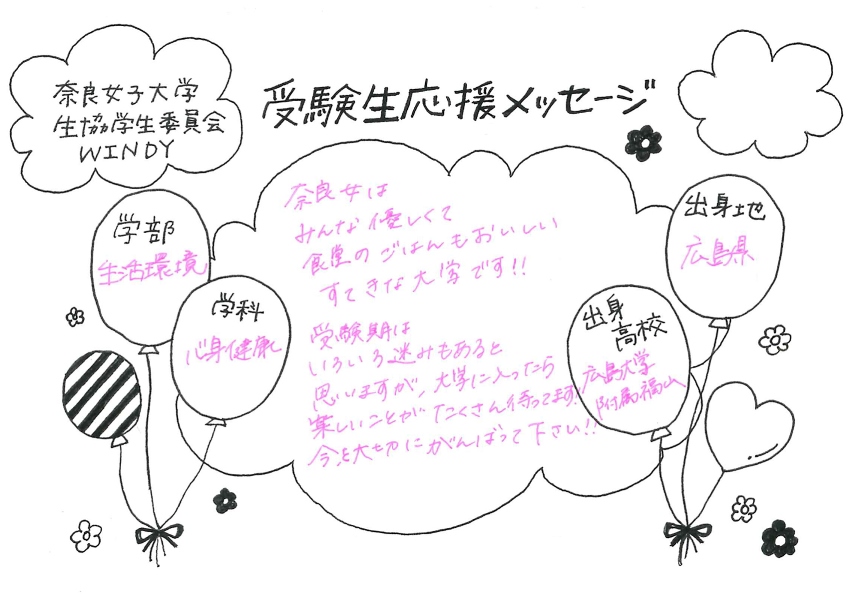 奈良女子大学
生協学生委員会
WINDY
受験生応援メッセージ
学部
生活環境
学科
心身健康
奈良女は
みんな優しくて
食堂のごはんもおいしい
すてきな大学です!!
受験期は
いろいろ迷みもあると
思いますが、大学に入ったら
楽しいことがたくさん待ってます!
今を大切にがんばって下さい!!
出身地
広島県
出身
高校
広島大学
附属福山